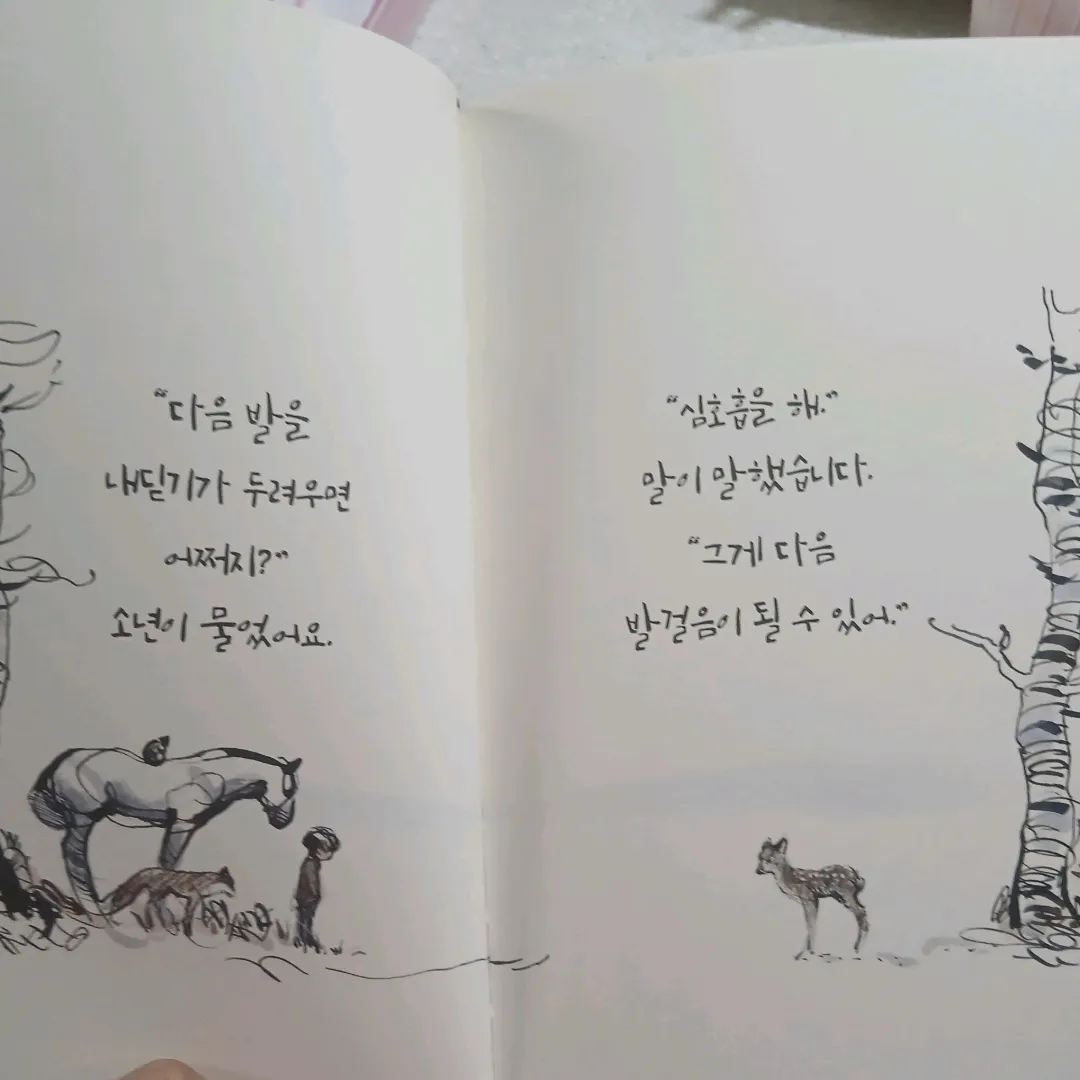 “다음 발을
내딛기가 두려우면
어쩌지?”
소년이 물었어요.
“심호흡을 해.”
말이 말했습니다.
“그게 다음
발걸음이 될 수 있어.”